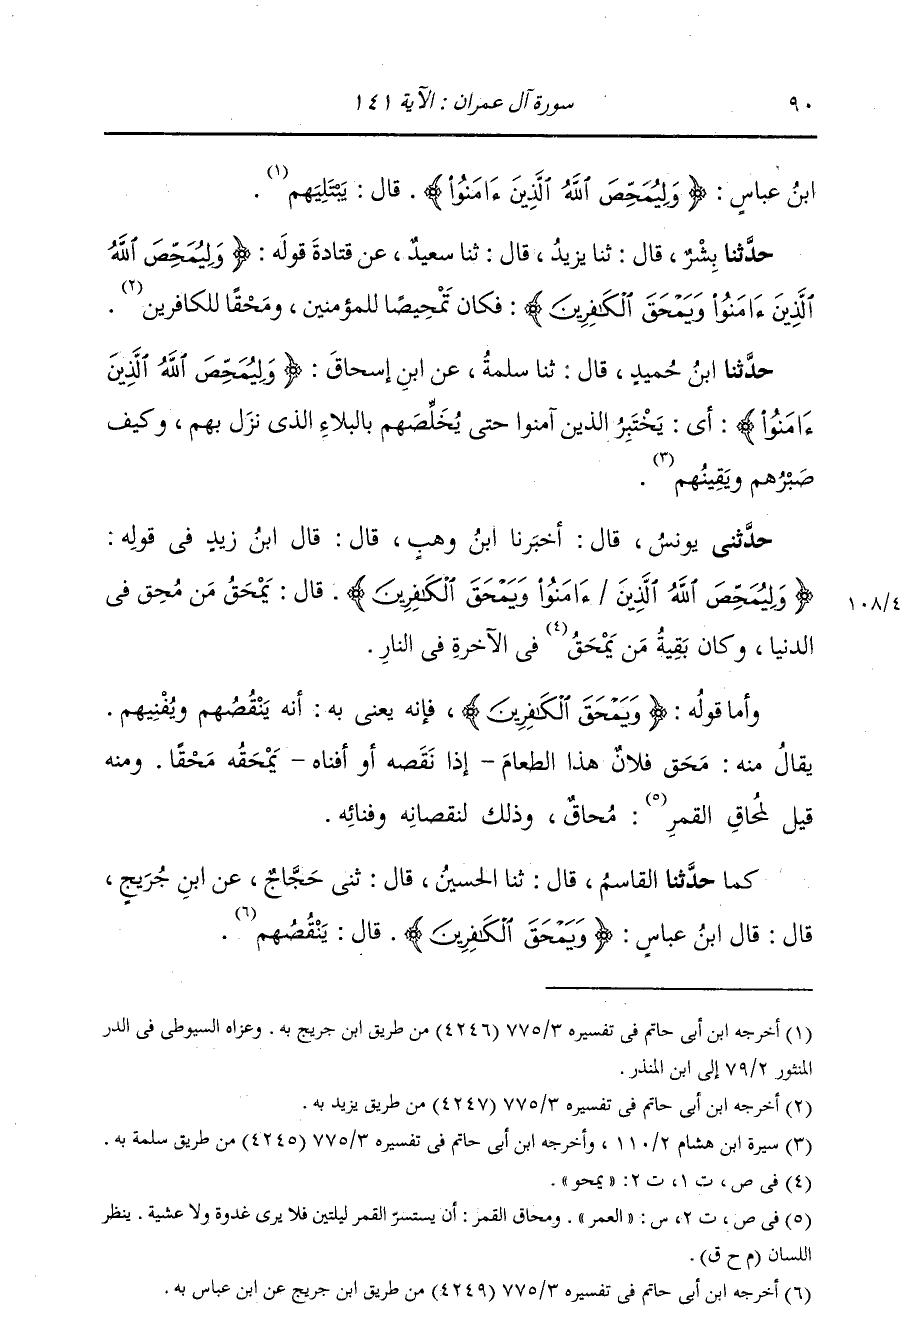 ٩٠ سورة آل عمران : الآية ١٤١
ابنُ عباسٍ : ﴿ وَلِيُمَحِّصَ ٱللَّهُ ٱلَّذِينَ ءَامَنُوا۟ ﴾ . قال : يَبْتَلِيَهم(١) .
حدَّثنا بِشْرٌ ، قال : ثنا يزيدُ ، قال : ثنا سعيدٌ ، عن قتادةَ قولَه : ﴿ وَلِيُمَحِّصَ ٱللَّهُ
ٱلَّذِينَ ءَامَنُوا۟ وَيَمْحَقَ ٱلْكَٰفِرِينَ ﴾ : فكان تَمْحِيصًا للمؤمنين ، ومَحْقًا للكافرين(٢) .
حدَّثنا ابنُ حُميدٍ ، قال : ثنا سلمةُ ، عن ابنِ إسحاقَ : ﴿ وَلِيُمَحِّصَ ٱللَّهُ ٱلَّذِينَ
ءَامَنُوا۟ ﴾ : أى : يَخْتَبِرُ الذين آمنوا حتى يُخَلِّصَهم بالبلاءِ الذى نزَل بهم ، وكيف
صَبْرُهم ويَقِينُهم(٣) .
حدَّثنى يونسُ ، قال : أخبَرنا ابنُ وهبٍ ، قال : قال ابنُ زيدٍ فى قولِه :
﴿ وَلِيُمَحِّصَ ٱللَّهُ ٱلَّذِينَ / ءَامَنُوا۟ وَيَمْحَقَ ٱلْكَٰفِرِينَ ﴾ . قال : يَمْحَقُ مَن مُحِق فى ١٠٨/٤
الدنيا ، وكان بَقِيةُ مَن يَمْحَقُ(٤) فى الآخرةِ فى النارِ .
وأما قولُه : ﴿ وَيَمْحَقَ ٱلْكَٰفِرِينَ ﴾ ، فإنه يعنى به : أنه يَنْقُصُهم ويُفْنِيهم .
يقالُ منه : مَحَق فلانٌ هذا الطعامَ – إذا نَقَصه أو أفناه – يَمْحَقُه مَحْقًا . ومنه
قيل لمُحاقِ القمرِ(٥) : مُحاقٌ ، وذلك لنقصانِه وفنائِه .
كما حدَّثنا القاسمُ ، قال : ثنا الحسينُ ، قال : ثنى حَجَّاجٌ ، عن ابنِ جُرَيجٍ ،
قال : قال ابنُ عباسٍ : ﴿ وَيَمْحَقَ ٱلْكَٰفِرِينَ ﴾ . قال : يَنْقُصُهم(٦) .
(١) أخرجه ابن أبى حاتم فى تفسيره ٧٧٥/٣ (٤٢٤٦) من طريق ابن جريج به . وعزاه السيوطى فى الدر
المنثور ٧٩/٢ إلى ابن المنذر .
(٢) أخرجه ابن أبى حاتم فى تفسيره ٧٧٥/٣ (٤٢٤٧) من طريق يزيد به .
(٣) سيرة ابن هشام ١١٠/٢ ، وأخرجه ابن أبى حاتم فى تفسيره ٧٧٥/٣ (٤٢٤٥) من طريق سلمة به .
(٤) فى ص ، ت ١، ت ٢: « يمحو » .
(٥) فى ص ، ت ٢، س : « العمر » . ومحاق القمر : أن يستسرّ القمر ليلتين فلا يرى غدوة ولا عشية . ينظر
اللسان (م ح ق) .
(٦) أخرجه ابن أبى حاتم فى تفسيره ٧٧٥/٣ (٤٢٤٩) من طريق ابن جريج عن ابن عباس به .